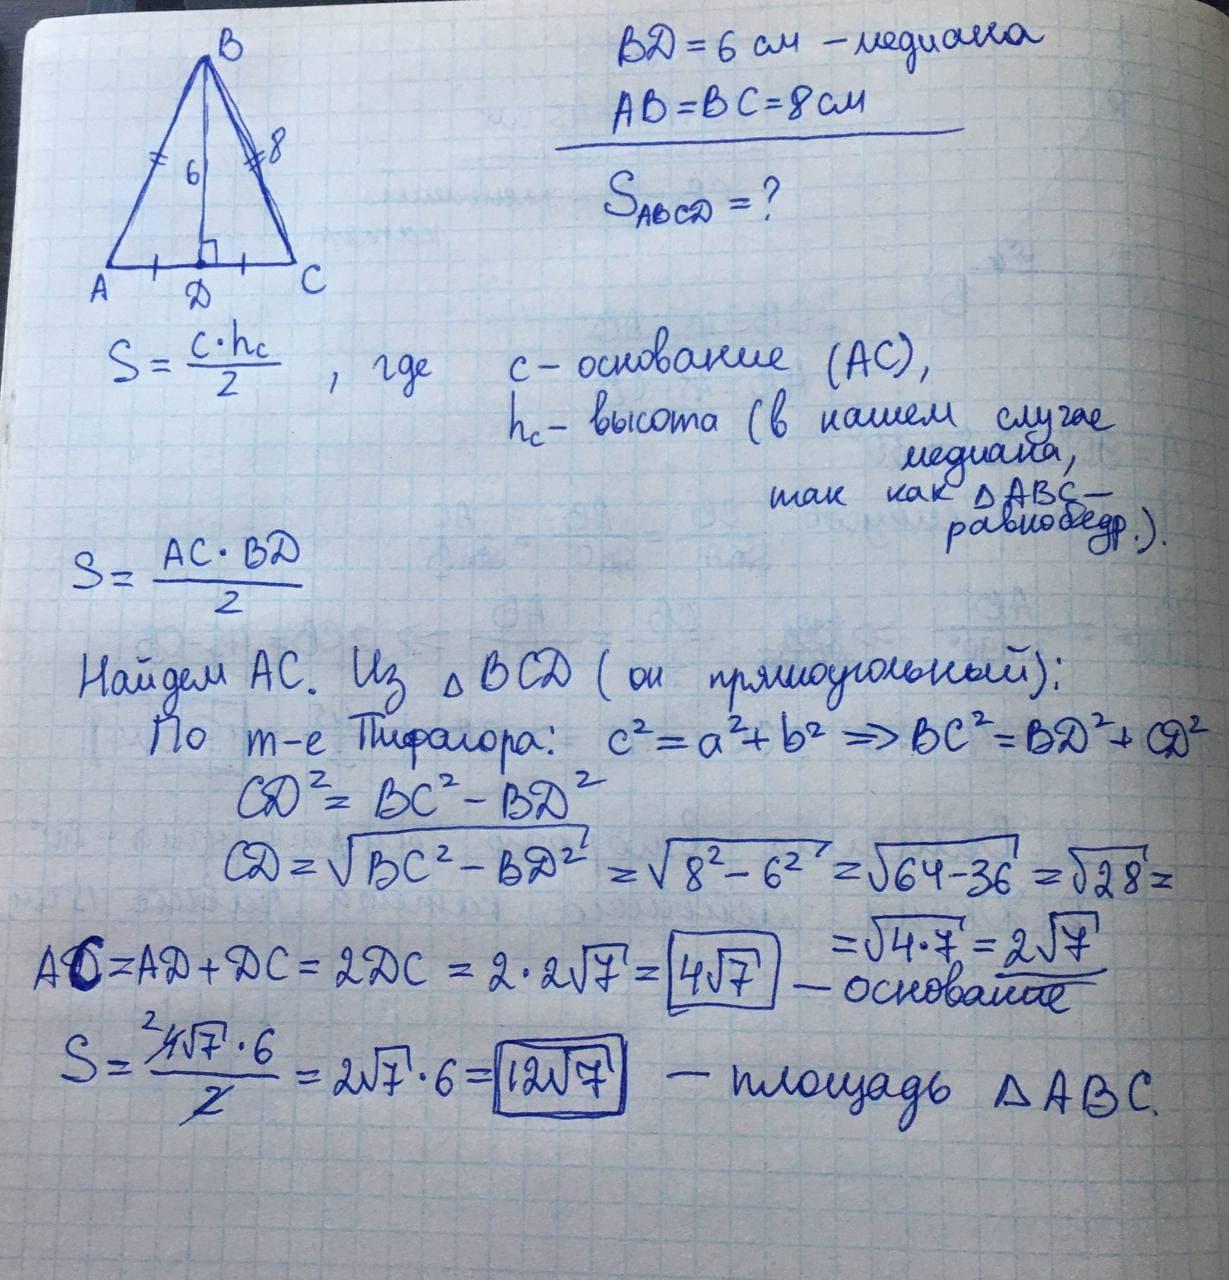 B
BD = 6 см – медиана
AB = BC = 8 см
6
8
S_ABCD = ?
A
D
C
S = c·h_c / 2 , где c – основание (AC),
h_c – высота (в нашем случае
медиана,
так как △ABC –
равнобедр.).
S = AC · BD / 2
Найдем AC. Из △BCD (он прямоугольный):
По т-е Пифагора: c² = a² + b² => BC² = BD² + CD²
CD² = BC² – BD²
CD = √(BC² – BD²) = √(8² – 6²) = √(64 – 36) = √28 =
= √(4·7) = 2√7
AC = AD + DC = 2DC = 2 · 2√7 = 4√7 – основание
S = 2 4√7 · 6 / 2 = 2√7 · 6 = 12√7 – площадь △ABC.